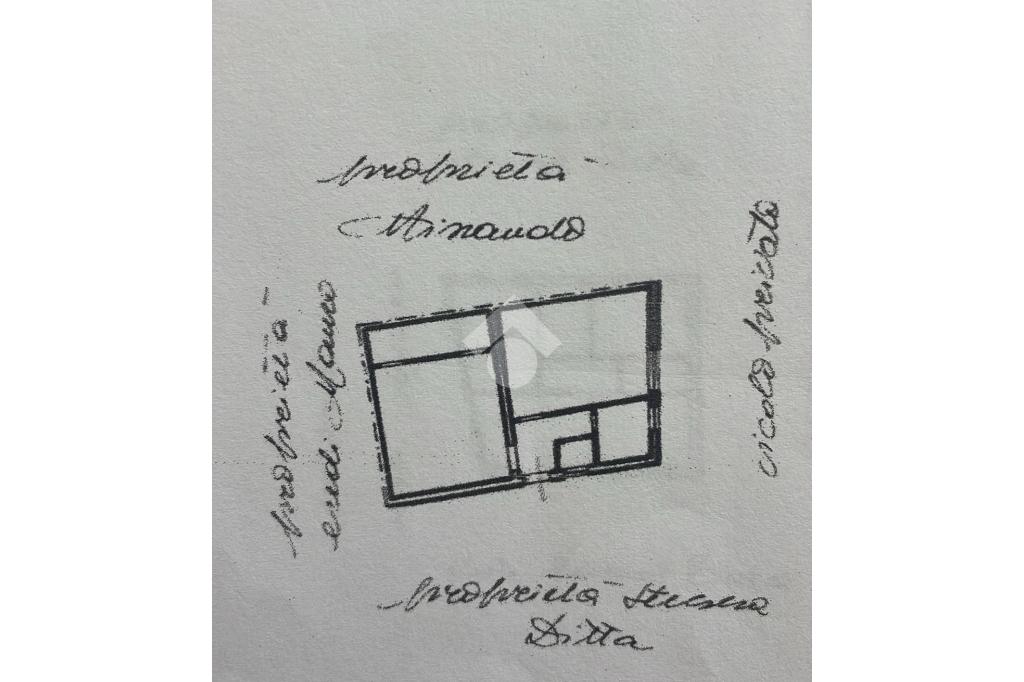 proprietà
Ainaudo
proprietà
eredi Mauro
vicolo privato
proprietà stessa
Ditta